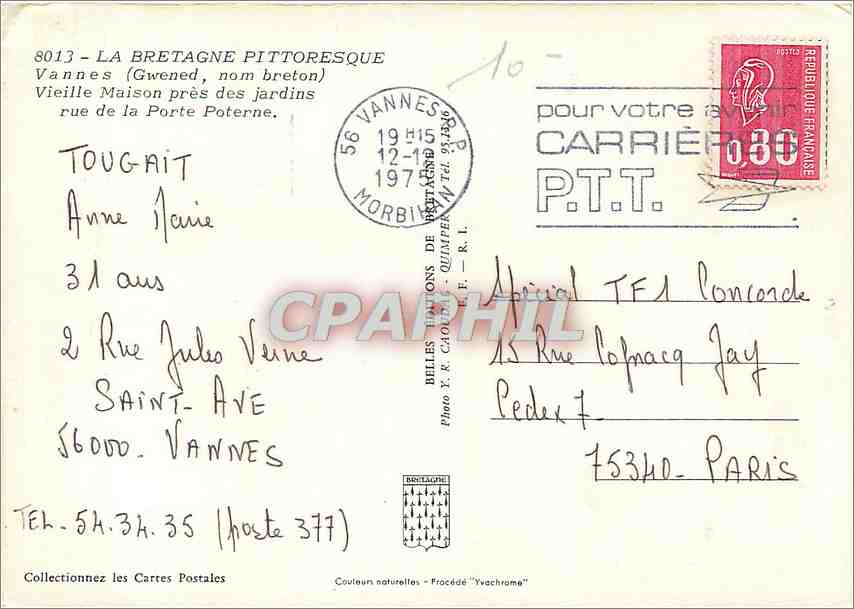 8013 - LA BRETAGNE PITTORESQUE
Vannes (Gwened, nom breton)
Vieille Maison près des jardins
rue de la Porte Poterne.
10-
56 VANNES R.P.
19 H15
12-12
1975
MORBIHAN
pour votre avenir
CARRIÈRES
P.T.T.
POSTES
RÉPUBLIQUE FRANÇAISE
0,80
TOUGAIT
Anne Marie
31 ans
2 Rue Jules Verne
SAINT-AVE
56000-VANNES
TEL-54.34.35 (poste 377)
BELLES ÉDITIONS DE BRETAGNE
Photo Y. R. CAOUDAL - QUIMPER Tél. 95.
E.F. — R. I.
Spécial TF1 Concorde
15 Rue Cognacq Jay
Cedex 7
75340-PARIS
CPAPHIL
BRETAGNE
Collectionnez les Cartes Postales
Couleurs naturelles - Procédé "Yvachrome"